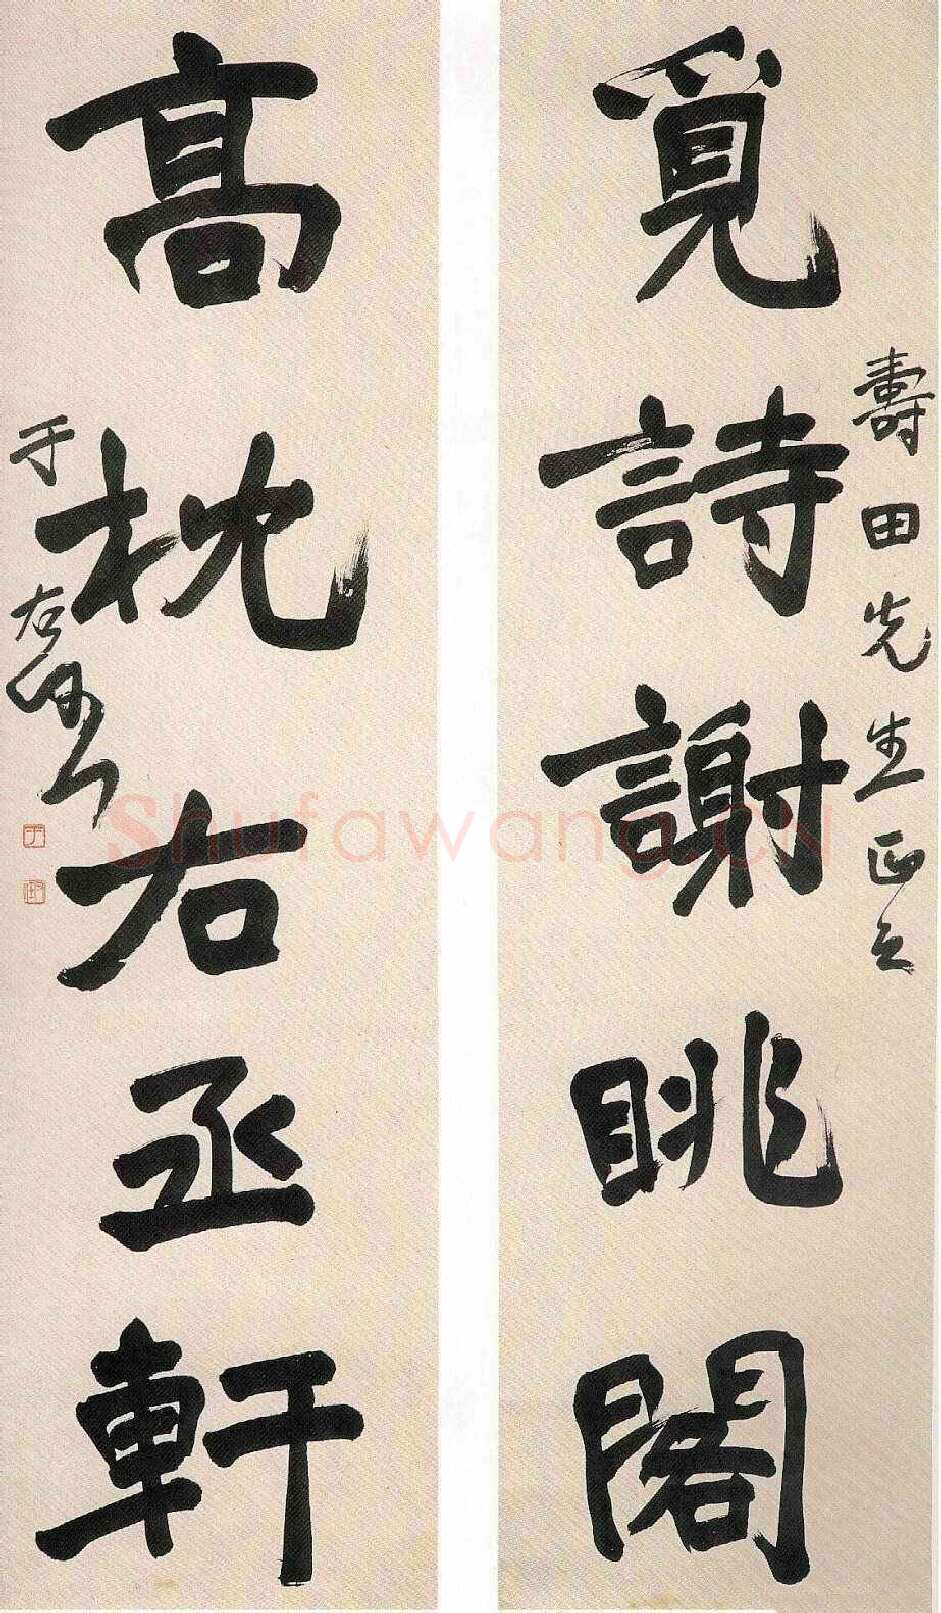 壽田先生正之
覓詩謝眺閣
高枕右丞軒
于右任
Shufawang.CN